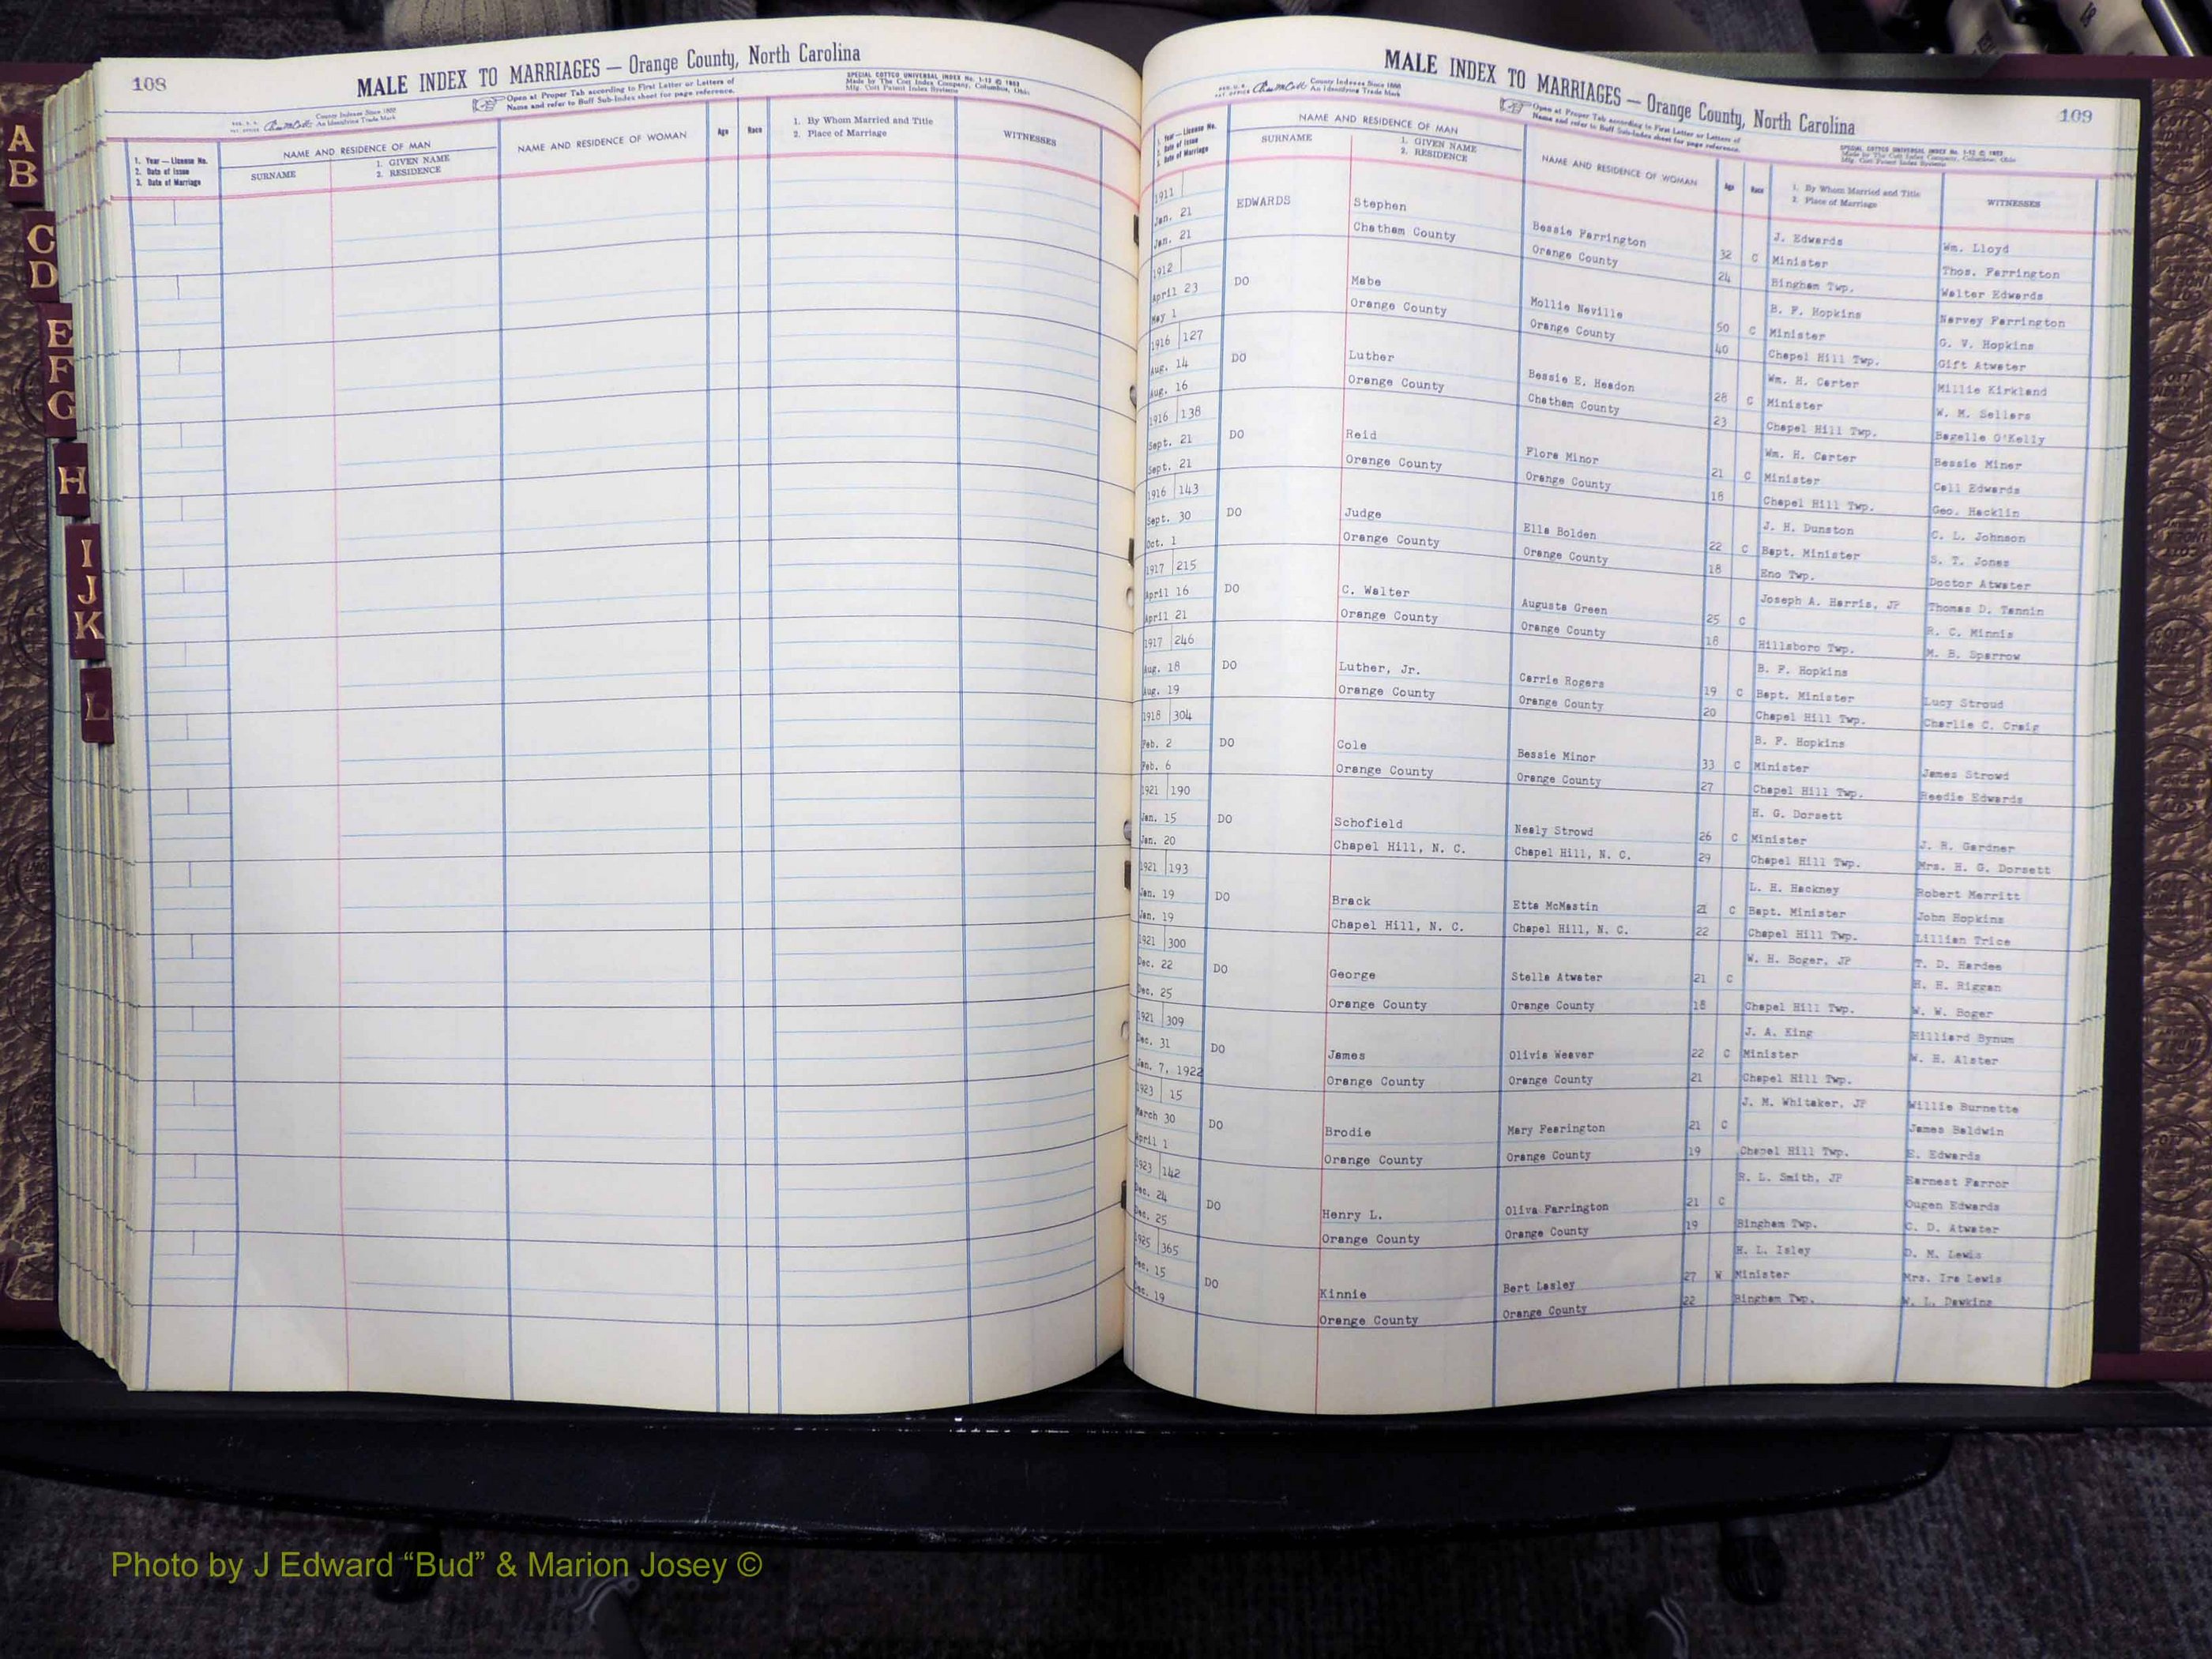 108
MALE INDEX TO MARRIAGES — Orange County, North Carolina
County Indexes Since 1888
An Identifying Trade Mark
Open at Proper Tab according to First Letter or Letters of
Name and refer to Buff Sub-Index sheet for page reference.
SPECIAL COTTCO UNIVERSAL INDEX No. 1-12 © 1953
Made by The Cott Index Company, Columbus, Ohio
Mfg. Cott Patent Index Systems
1. Year — License No.
2. Date of Issue
3. Date of Marriage
NAME AND RESIDENCE OF MAN
SURNAME
1. GIVEN NAME
2. RESIDENCE
NAME AND RESIDENCE OF WOMAN
Age
Race
1. By Whom Married and Title
2. Place of Marriage
WITNESSES
A
B
C
D
E
F
G
H
I
J
K
L
MALE INDEX TO MARRIAGES — Orange County, North Carolina
109
County Indexes Since 1888
An Identifying Trade Mark
Open at Proper Tab according to First Letter or Letters of
Name and refer to Buff Sub-Index sheet for page reference.
1. Year — License No.
2. Date of Issue
3. Date of Marriage
NAME AND RESIDENCE OF MAN
SURNAME
1. GIVEN NAME
2. RESIDENCE
NAME AND RESIDENCE OF WOMAN
Age
Race
1. By Whom Married and Title
2. Place of Marriage
WITNESSES
1911 J. Edwards Wm. Lloyd
Jan. 21 EDWARDS Stephen Bessie Farrington 32 C Minister Thos. Farrington
Jan. 21 Chatham County Orange County 24 Bingham Twp. Walter Edwards
1912 B. F. Hopkins Nervey Farrington
April 23 DO Mabe Mollie Neville 50 C Minister G. V. Hopkins
May 1 Orange County Orange County 40 Chapel Hill Twp. Gift Atwater
1916 127 Wm. H. Carter Millie Kirkland
Aug. 14 DO Luther Bessie E. Headon 28 C Minister W. M. Sellars
Aug. 16 Orange County Chatham County 23 Chapel Hill Twp. Bagelle O'Kelly
1916 138 Wm. H. Carter Bessie Miner
Sept. 21 DO Reid Flora Minor 21 C Minister Cell Edwards
Sept. 21 Orange County Orange County 18 Chapel Hill Twp. Geo. Hacklin
1916 143 J. H. Dunston C. L. Johnson
Sept. 30 DO Judge Ella Bolden 22 C Bapt. Minister S. T. Jones
Oct. 1 Orange County Orange County 18 Eno Twp. Doctor Atwater
1917 215 Joseph A. Harris, JP Thomas D. Tannin
April 16 DO C. Walter Augusta Green 25 C R. C. Minnis
April 21 Orange County Orange County 18 Hillsboro Twp. M. B. Sparrow
1917 246 B. F. Hopkins
Aug. 18 DO Luther, Jr. Carrie Rogers 19 C Bapt. Minister Lucy Stroud
Aug. 19 Orange County Orange County 20 Chapel Hill Twp. Charlie C. Craig
1918 304 B. F. Hopkins
Feb. 2 DO Cole Bessie Minor 33 C Minister James Strowd
Feb. 6 Orange County Orange County 27 Chapel Hill Twp. Reedie Edwards
1921 190 H. G. Dorsett
Jan. 15 DO Schofield Nealy Strowd 26 C Minister J. H. Gardner
Jan. 20 Chapel Hill, N. C. Chapel Hill, N. C. 29 Chapel Hill Twp. Mrs. H. G. Dorsett
1921 193 L. H. Hackney Robert Merritt
Jan. 19 DO Brack Etta McMastin 21 C Bapt. Minister John Hopkins
Jan. 19 Chapel Hill, N. C. Chapel Hill, N. C. 22 Chapel Hill Twp. Lillian Trice
1921 300 W. H. Boger, JP T. D. Hardee
Dec. 22 DO George Stella Atwater 21 C H. H. Riggan
Dec. 25 Orange County Orange County 18 Chapel Hill Twp. W. W. Boger
1921 309 J. A. King Hilliard Bynum
Dec. 31 DO James Olivia Weaver 22 C Minister W. H. Alster
Jan. 7, 1922 Orange County Orange County 21 Chapel Hill Twp.
1923 15 J. M. Whitaker, JP Willie Burnette
March 30 DO Brodie Mary Fearington 21 C James Baldwin
April 1 Orange County Orange County 19 Chapel Hill Twp. E. Edwards
1923 142 R. L. Smith, JP Earnest Farror
Dec. 24 DO Henry L. Oliva Farrington 21 C Ougen Edwards
Dec. 25 Orange County Orange County 19 Bingham Twp. C. D. Atwater
1925 365 H. L. Isley D. M. Lewis
Dec. 15 DO Kinnie Bert Lasley 27 W Minister Mrs. Ira Lewis
Dec. 19 Orange County Orange County 22 Bingham Twp. W. L. Dawkins
Photo by J Edward “Bud” & Marion Josey ©